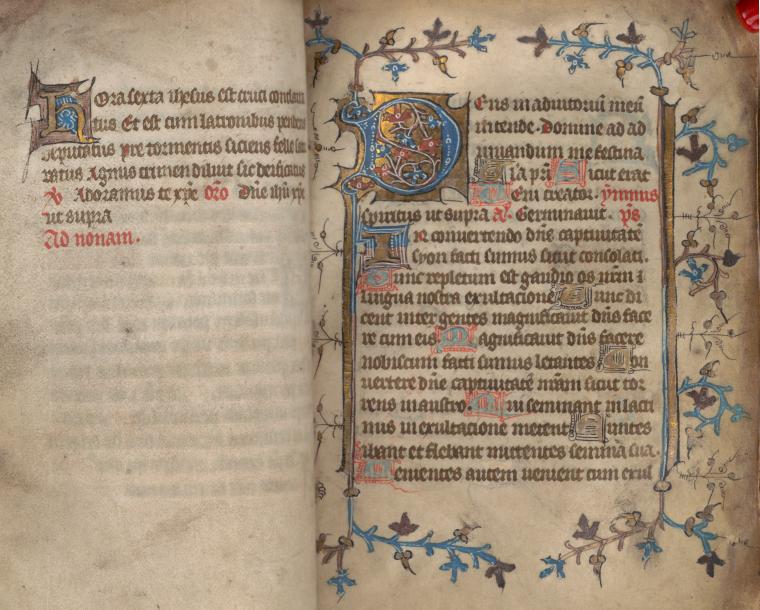 Hora sexta ihesus est cruci conclaua
tus Et est cum latronibus pendens
deputatus pre tormentis siciens felle satu
ratus Agnus crimen diluit sic deificatus
Adoramus te xpe Oro Dne ihu xpe
ut supra
Ad nonam.
Deus in adiutoriū meū
intende. Domine ad ad
iuuandum me festina
Gla pri Sicut erat
Ueni creator. ymnus
spiritus ut supra a. Germinauit. ps
In conuertendo dne captiuitatē
syon facti sumus sicut consolati.
Tunc repletum est gaudio os nrm i
lingua nostra exultacione Tunc di
cent inter gentes magnificauit dns face
re cum eis. Magnificauit dns facere
nobiscum facti sumus letantes Con
uertere dne captiuitatē nram sicut tor
rens in austro. Qui seminant in lacri
mis in exultacione metent Euntes
ibant et flebant mittentes semina sua.
Uenientes autem uenient cum exul